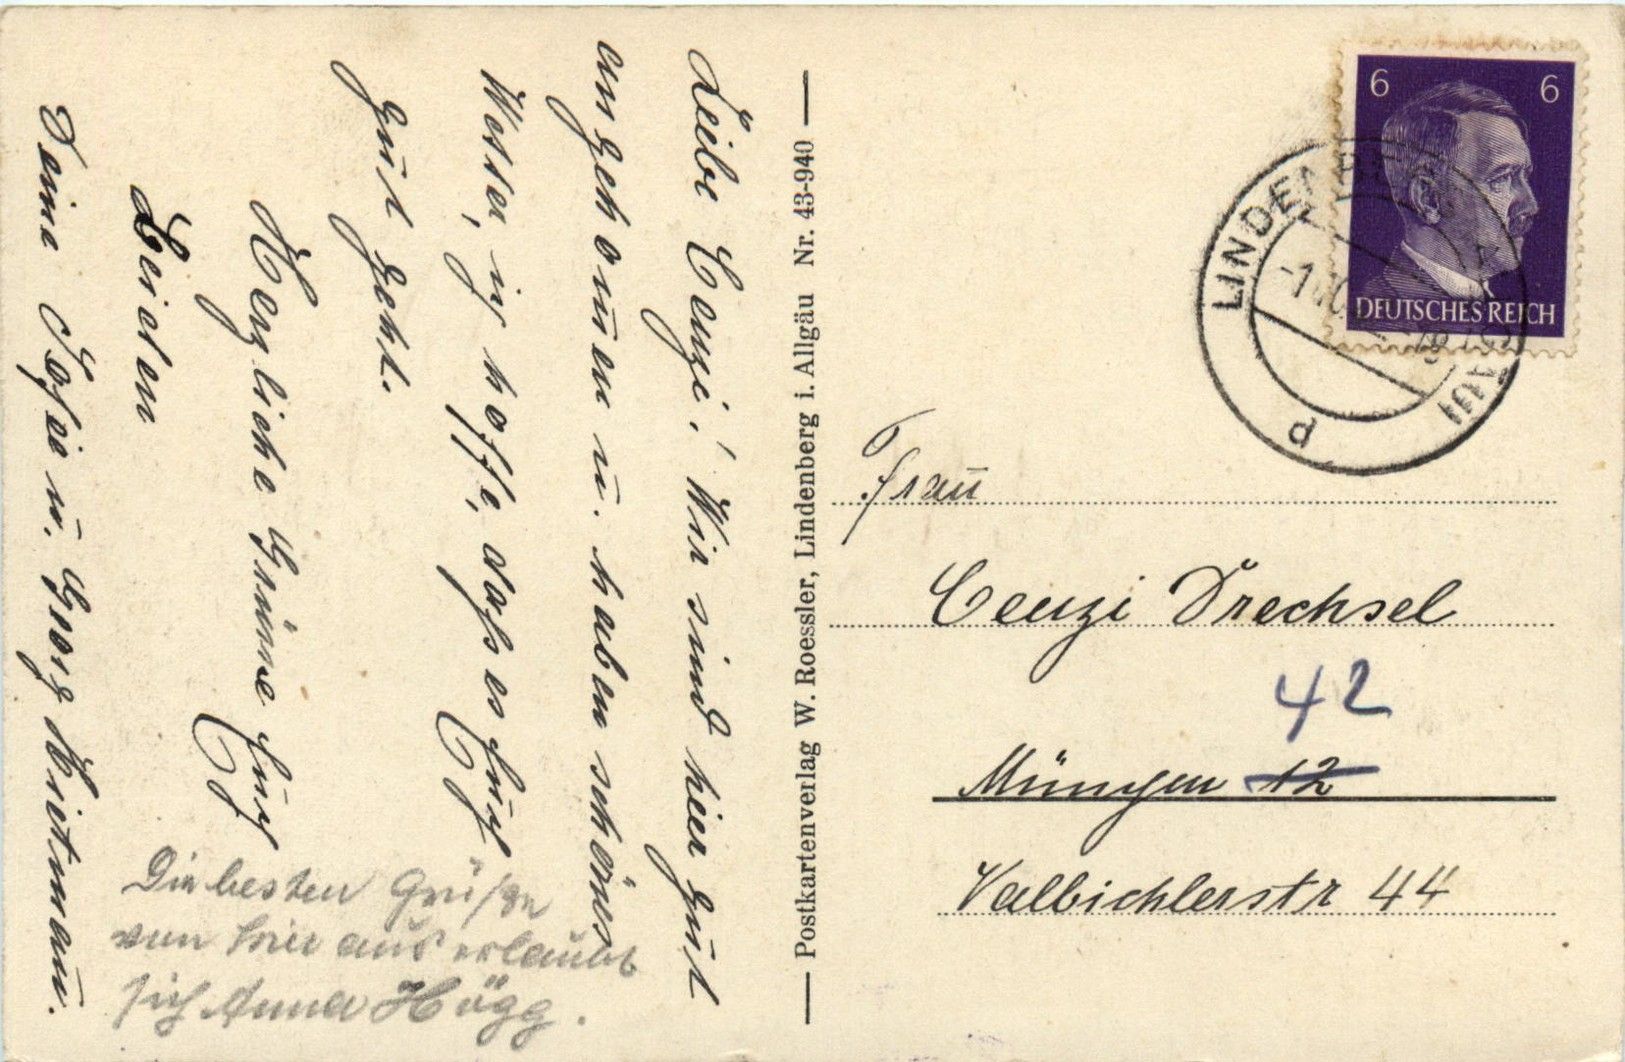 Leibe Cenzi! Wir sind hier gut
angekommen u. haben schönes
Wetter, ich hoffe, daß es Euch
gut geht.
Herzliche Grüße Euch
Beiden
Deine Josie u. Georg Kietmann.
Die besten Grüße
von hier aus erlaubt
sich Anna Högg.
Postkartenverlag W. Roessler, Lindenberg i. Allgäu Nr. 43-940
6 6
DEUTSCHES REICH
LINDENBERG
Frau
Cenzi Drechsel
42
München 12
Valbichlerstr 44